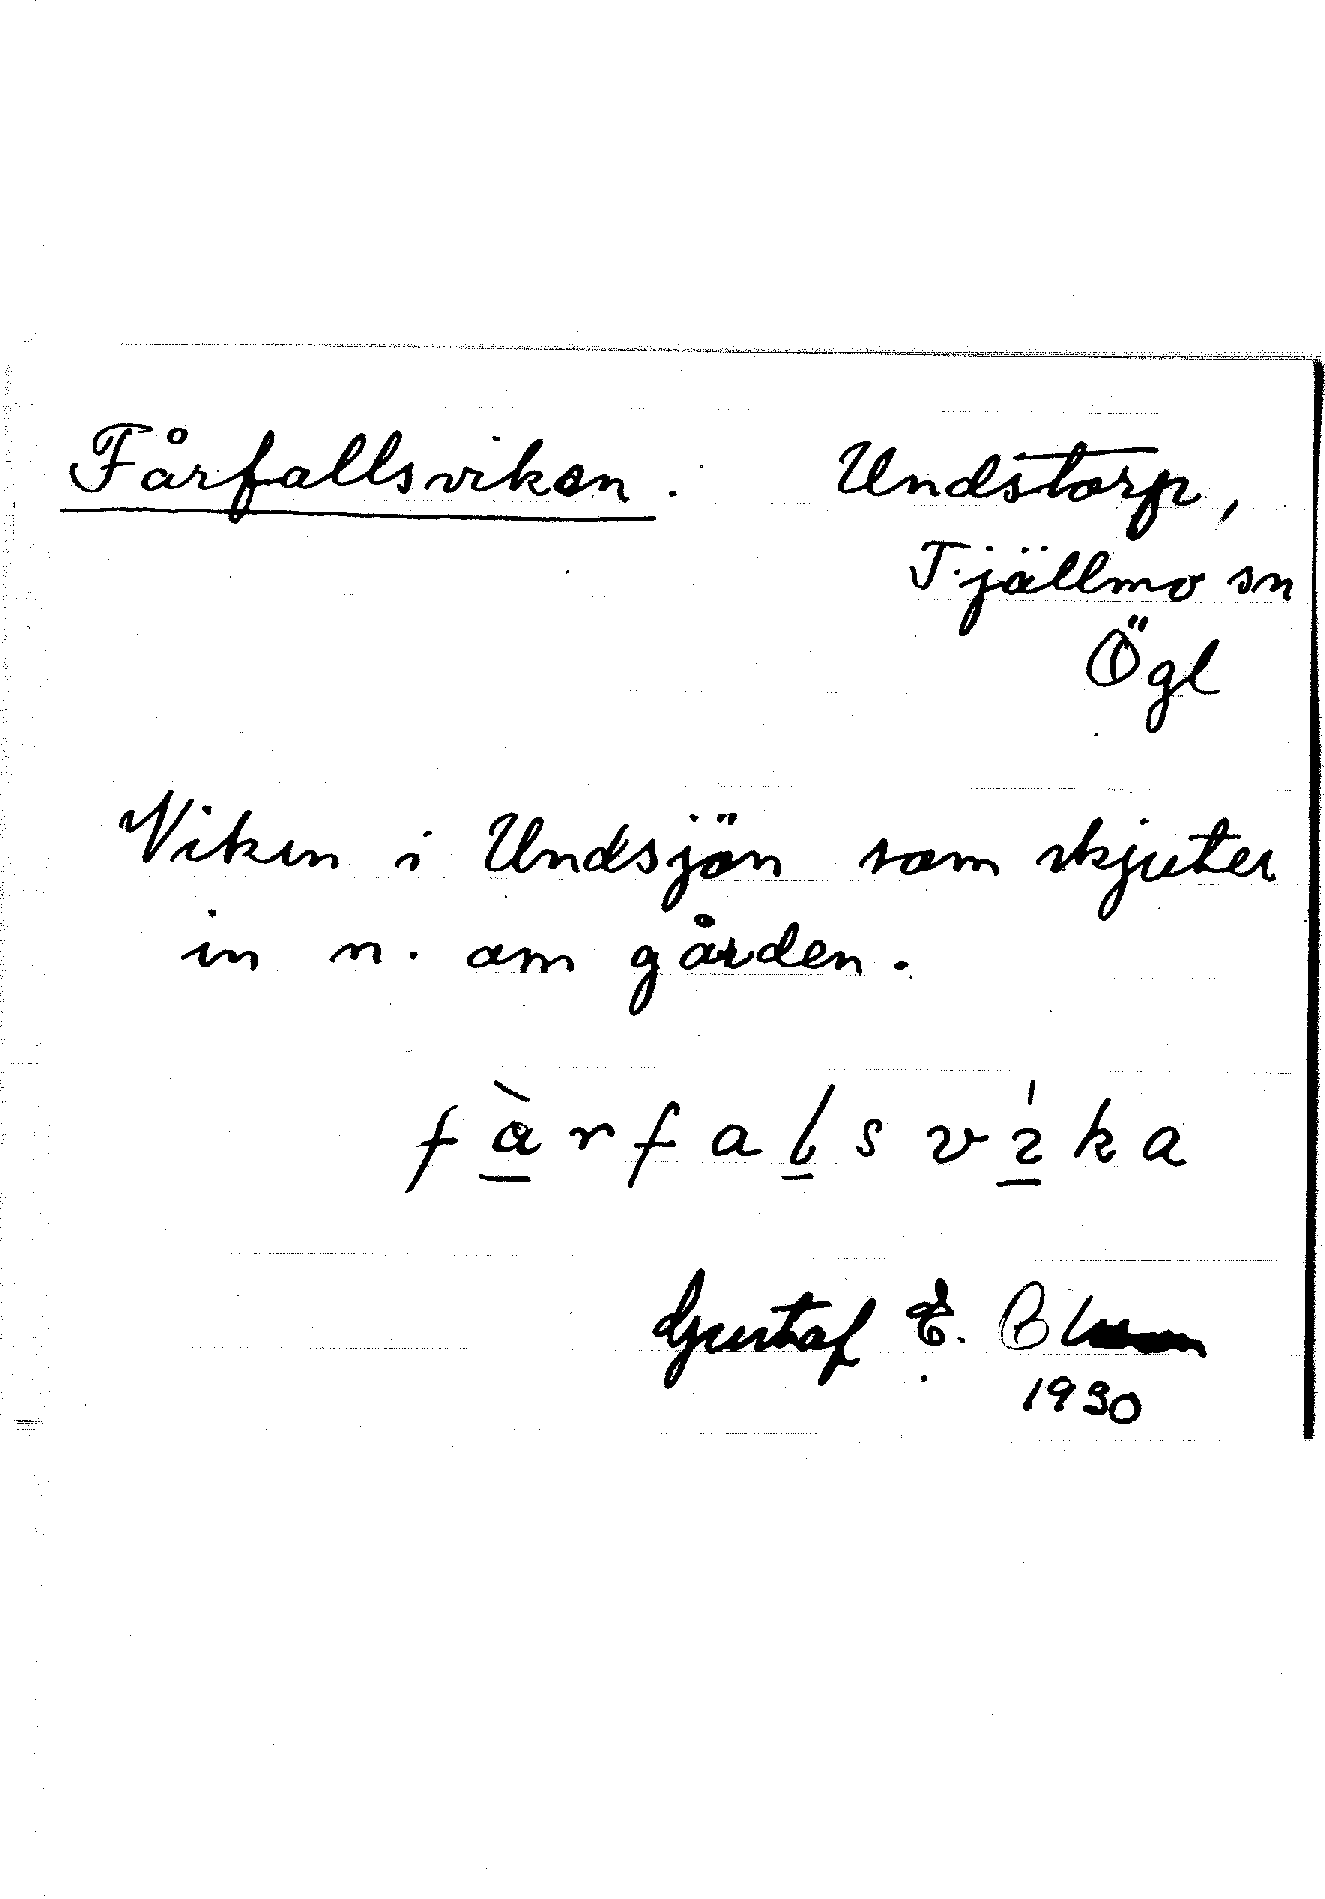 Fårfallsviken. Undstorp,
Tjällmo sn
Ögl
Viken i Undsjön som skjuter
in n. om gården.
fàrfalsvíka
Gustaf E.
1930